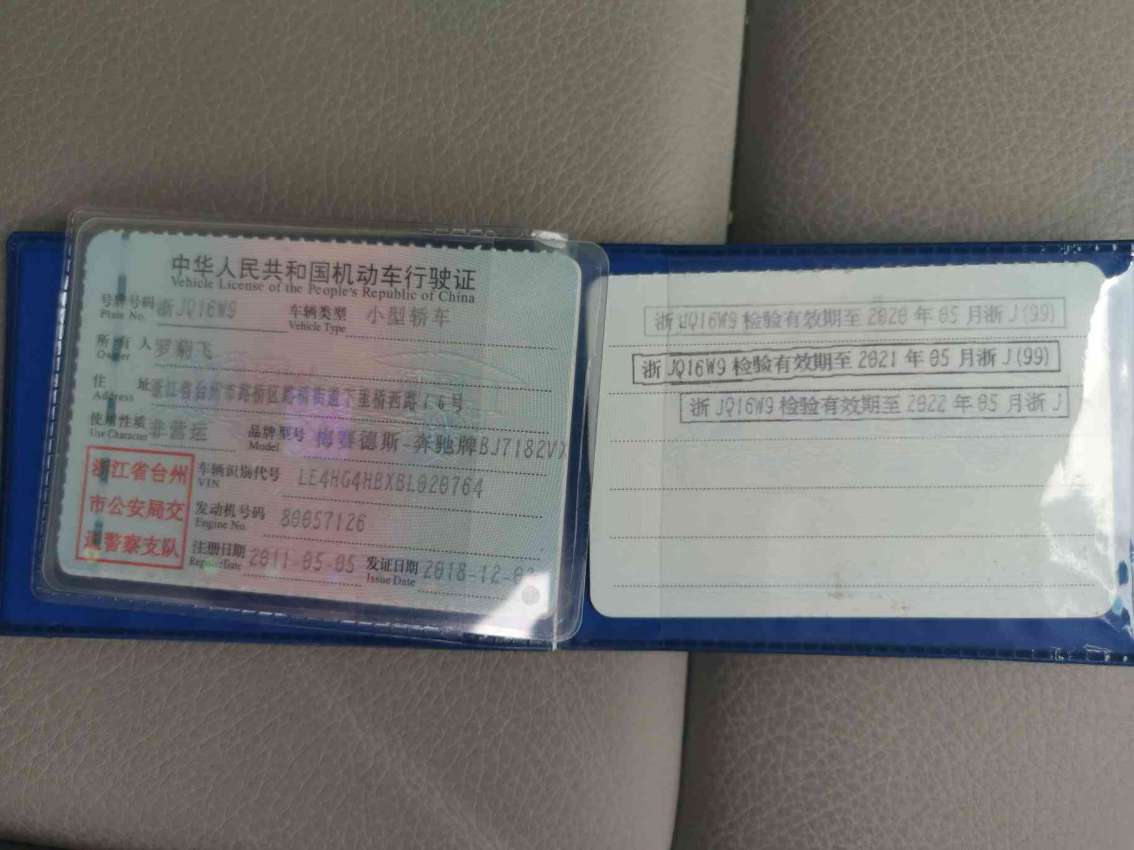 中华人民共和国机动车行驶证
Vehicle License of the People's Republic of China
号牌号码 浙JQ16W9 车辆类型 小型轿车
Plate No. Vehicle Type
所有人 罗菊飞
Owner
住址 浙江省台州市路桥区路桥街道下里桥西路76号
Address
使用性质 非营运 品牌型号 梅赛德斯-奔驰牌BJ7182VX
Use Character Model
浙江省台州
市公安局交
通警察支队
车辆识别代号 LE4HG4HBXBL020764
VIN
发动机号码 80057126
Engine No.
注册日期 2011-05-05 发证日期 2018-12-0
Register Date Issue Date
浙JQ16W9检验有效期至2020年05月浙J(99)
浙JQ16W9检验有效期至2021年05月浙J(99)
浙JQ16W9检验有效期至2022年05月浙J